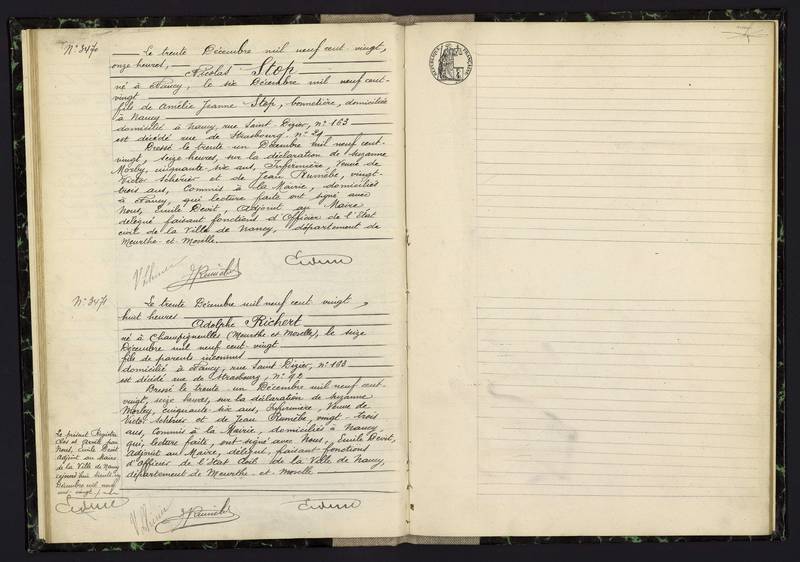 N° 3470
Le trente Décembre mil neuf cent vingt,
onze heures,
Nicolas Stop
né à Nancy, le six Décembre mil neuf cent
vingt
fils de Amélie Jeanne Stop, bonnetière, domiciliée
à Nancy
domicilié à Nancy, rue Saint-Dizier, n° 163
est décédé rue de Strasbourg, n°
Dressé le trente-un Décembre mil neuf cent-
vingt, seize heures, sur la déclaration de Suzanne
cinquante-six ans, Infirmière, Veuve de
Victor et de Jean vingt-
trois ans, Commis à la Mairie, domiciliés
à Nancy, qui lecture faite ont signé avec
Nous, Emile Devit, Adjoint au Maire
délégué faisant fonctions d'Officier de l'Etat
civil de la Ville de Nancy, département de
Meurthe-et-Moselle.
N° 3471
Le trente Décembre mil neuf cent vingt,
huit heures
Adolphe Richert
né à Champigneulles (Meurthe et Moselle), le seize
Décembre mil neuf cent-vingt
fils de parents inconnus
domicilié à Nancy, rue Saint Dizier, n° 163
est décédé rue de Strasbourg, n°
Dressé le trente-un Décembre mil neuf cent-
vingt, seize heures, sur la déclaration de Suzanne
cinquante-six ans, Infirmière, Veuve de
Victor et de Jean vingt-trois
ans, Commis à la Mairie, domiciliés à Nancy,
qui, lecture faite, ont signé avec Nous, Emile Devit,
Adjoint au Maire, délégué, faisant fonctions
d'Officier de l'Etat Civil de la Ville de Nancy,
département de Meurthe-et-Moselle
Le présent Registre
clos et arrêté par
Nous, Emile Devit
Adjoint au Maire
de la Ville de Nancy
cejourd'hui trente-un
Décembre mil neuf
cent vingt